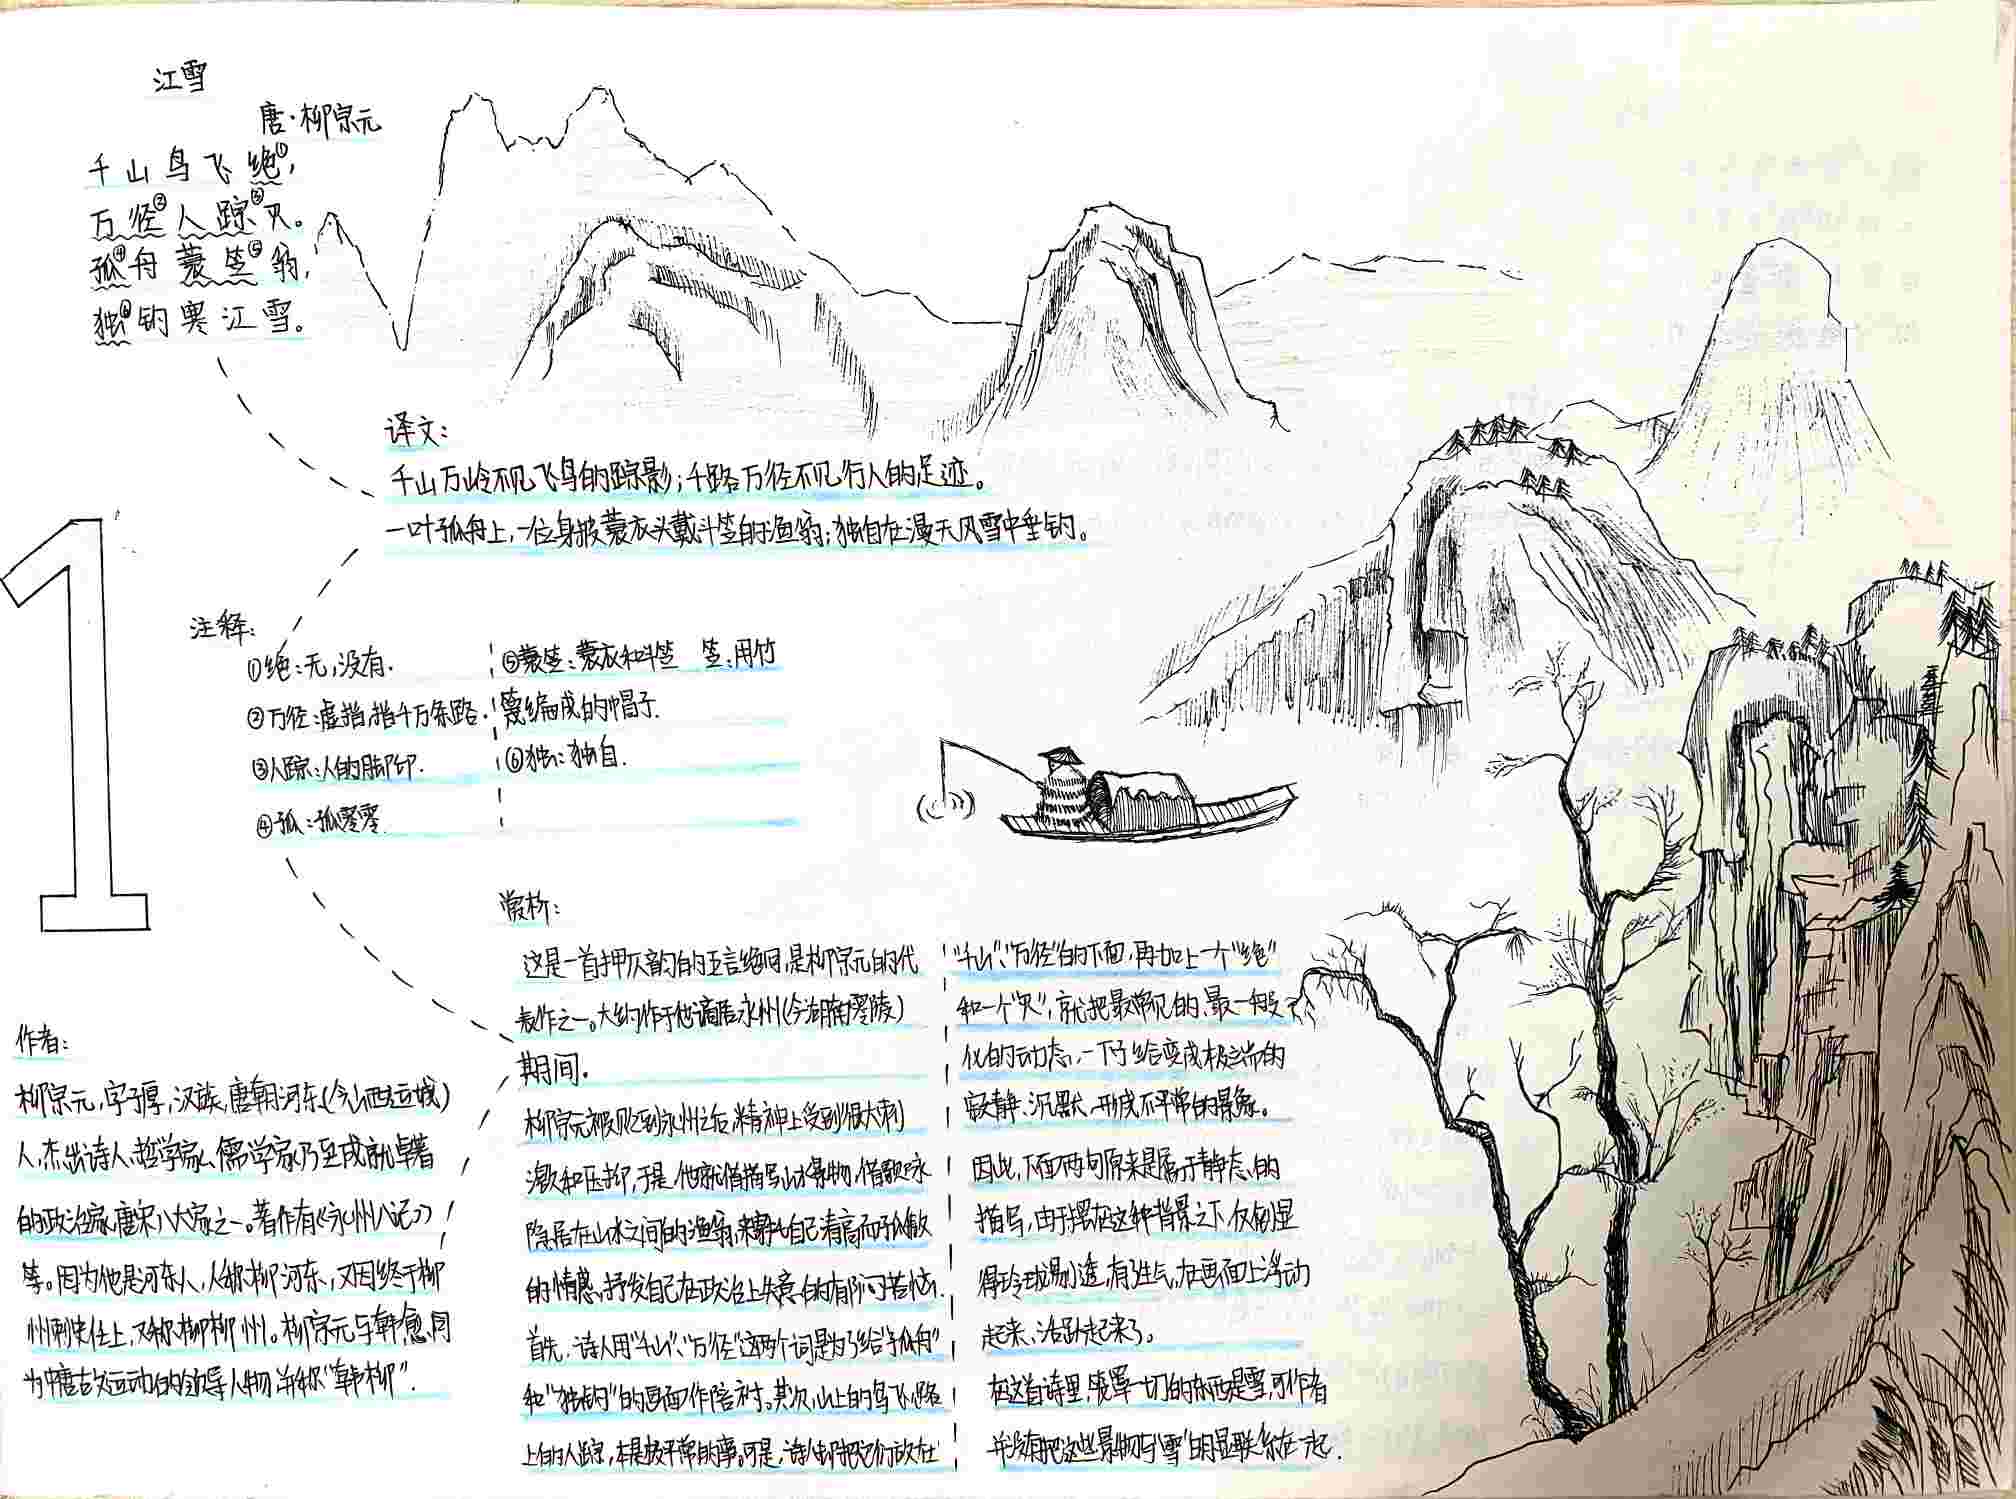 江雪
唐·柳宗元
千山鸟飞绝①，
万径②人踪③灭。
孤④舟蓑笠⑤翁，
独⑥钓寒江雪。
译文：
千山万岭不见飞鸟的踪影；千路万径不见行人的足迹。
一叶孤舟上，一位身披蓑衣头戴斗笠的渔翁；独自在漫天风雪中垂钓。
1
注释：
①绝：无，没有.
②万径：虚指，指千万条路.
③人踪：人的脚印.
④孤：孤零零.
⑤蓑笠：蓑衣和斗笠 笠：用竹
篾编成的帽子.
⑥独：独自.
作者：
柳宗元，字子厚，汉族，唐朝河东（今山西运城）
人，杰出诗人、哲学家、儒学家乃至成就卓著
的政治家，唐宋八大家之一。著作有《永州八记》
等。因为他是河东人，人称柳河东，又因终于柳
州刺史任上，又称柳柳州。柳宗元与韩愈同
为中唐古文运动的领导人物，并称“韩柳”.
赏析：
这是一首押仄韵的五言绝句，是柳宗元的代
表作之一。大约作于他谪居永州（今湖南零陵）
期间.
柳宗元被贬到永州之后，精神上受到很大刺
激和压抑，于是，他就借描写山水景物，借歌咏
隐居在山水之间的渔翁，来寄托自己清高而孤傲
的情感，抒发自己在政治上失意的郁闷苦恼.
首先，诗人用“千山”、“万径”这两个词是为了给“孤舟”
和“独钓”的画面作陪衬。其次，山上的鸟飞，路
上的人踪，本是极平常的事，可是，诗人却把它们放在
“千山”、“万径”的下面，再加上一个“绝”
和一个“灭”，就把最常见的、最一般
化的动态，一下子给变成极端的
寂静、沉默，形成不平常的景象。
因此，下面两句原来是属于静态的
描写，由于摆在这种背景之下，仅倒显
得玲珑剔透，有生气，在画面上浮动
起来、活跃起来了。
在这首诗里，笼罩一切的东西是雪，可作者
并没有把这些景物与“雪”明显联系在一起.